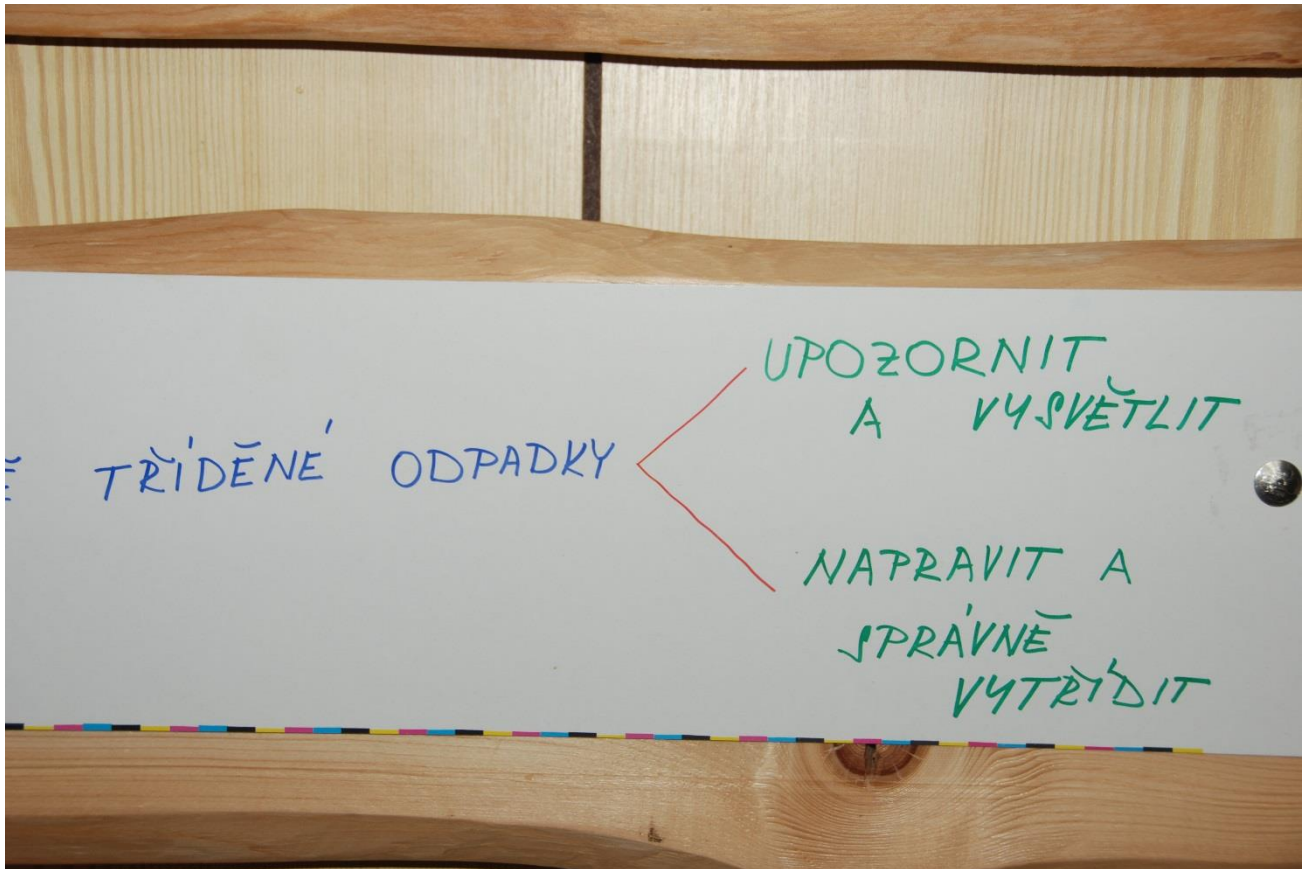 TŘÍDĚNÉ ODPADKY
UPOZORNIT
A VYSVĚTLIT
NAPRAVIT A
SPRÁVNĚ
VYTŘÍDIT